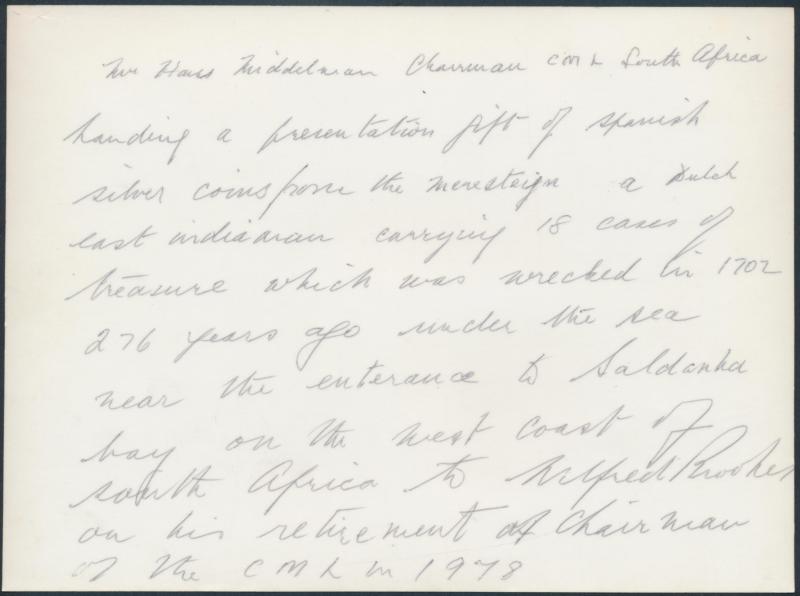 Mr Hans Middelman Chairman CML South Africa
handing a presentation gift of spanish
silver coins from the Meresteijn a Dutch
east indiaman carrying 18 cases of
treasure which was wrecked in 1702
276 years ago under the sea
near the enterance to Saldanha
bay on the west coast of
south Africa to Wilfred Brookes
on his retirement as Chairman
of the CML in 1978